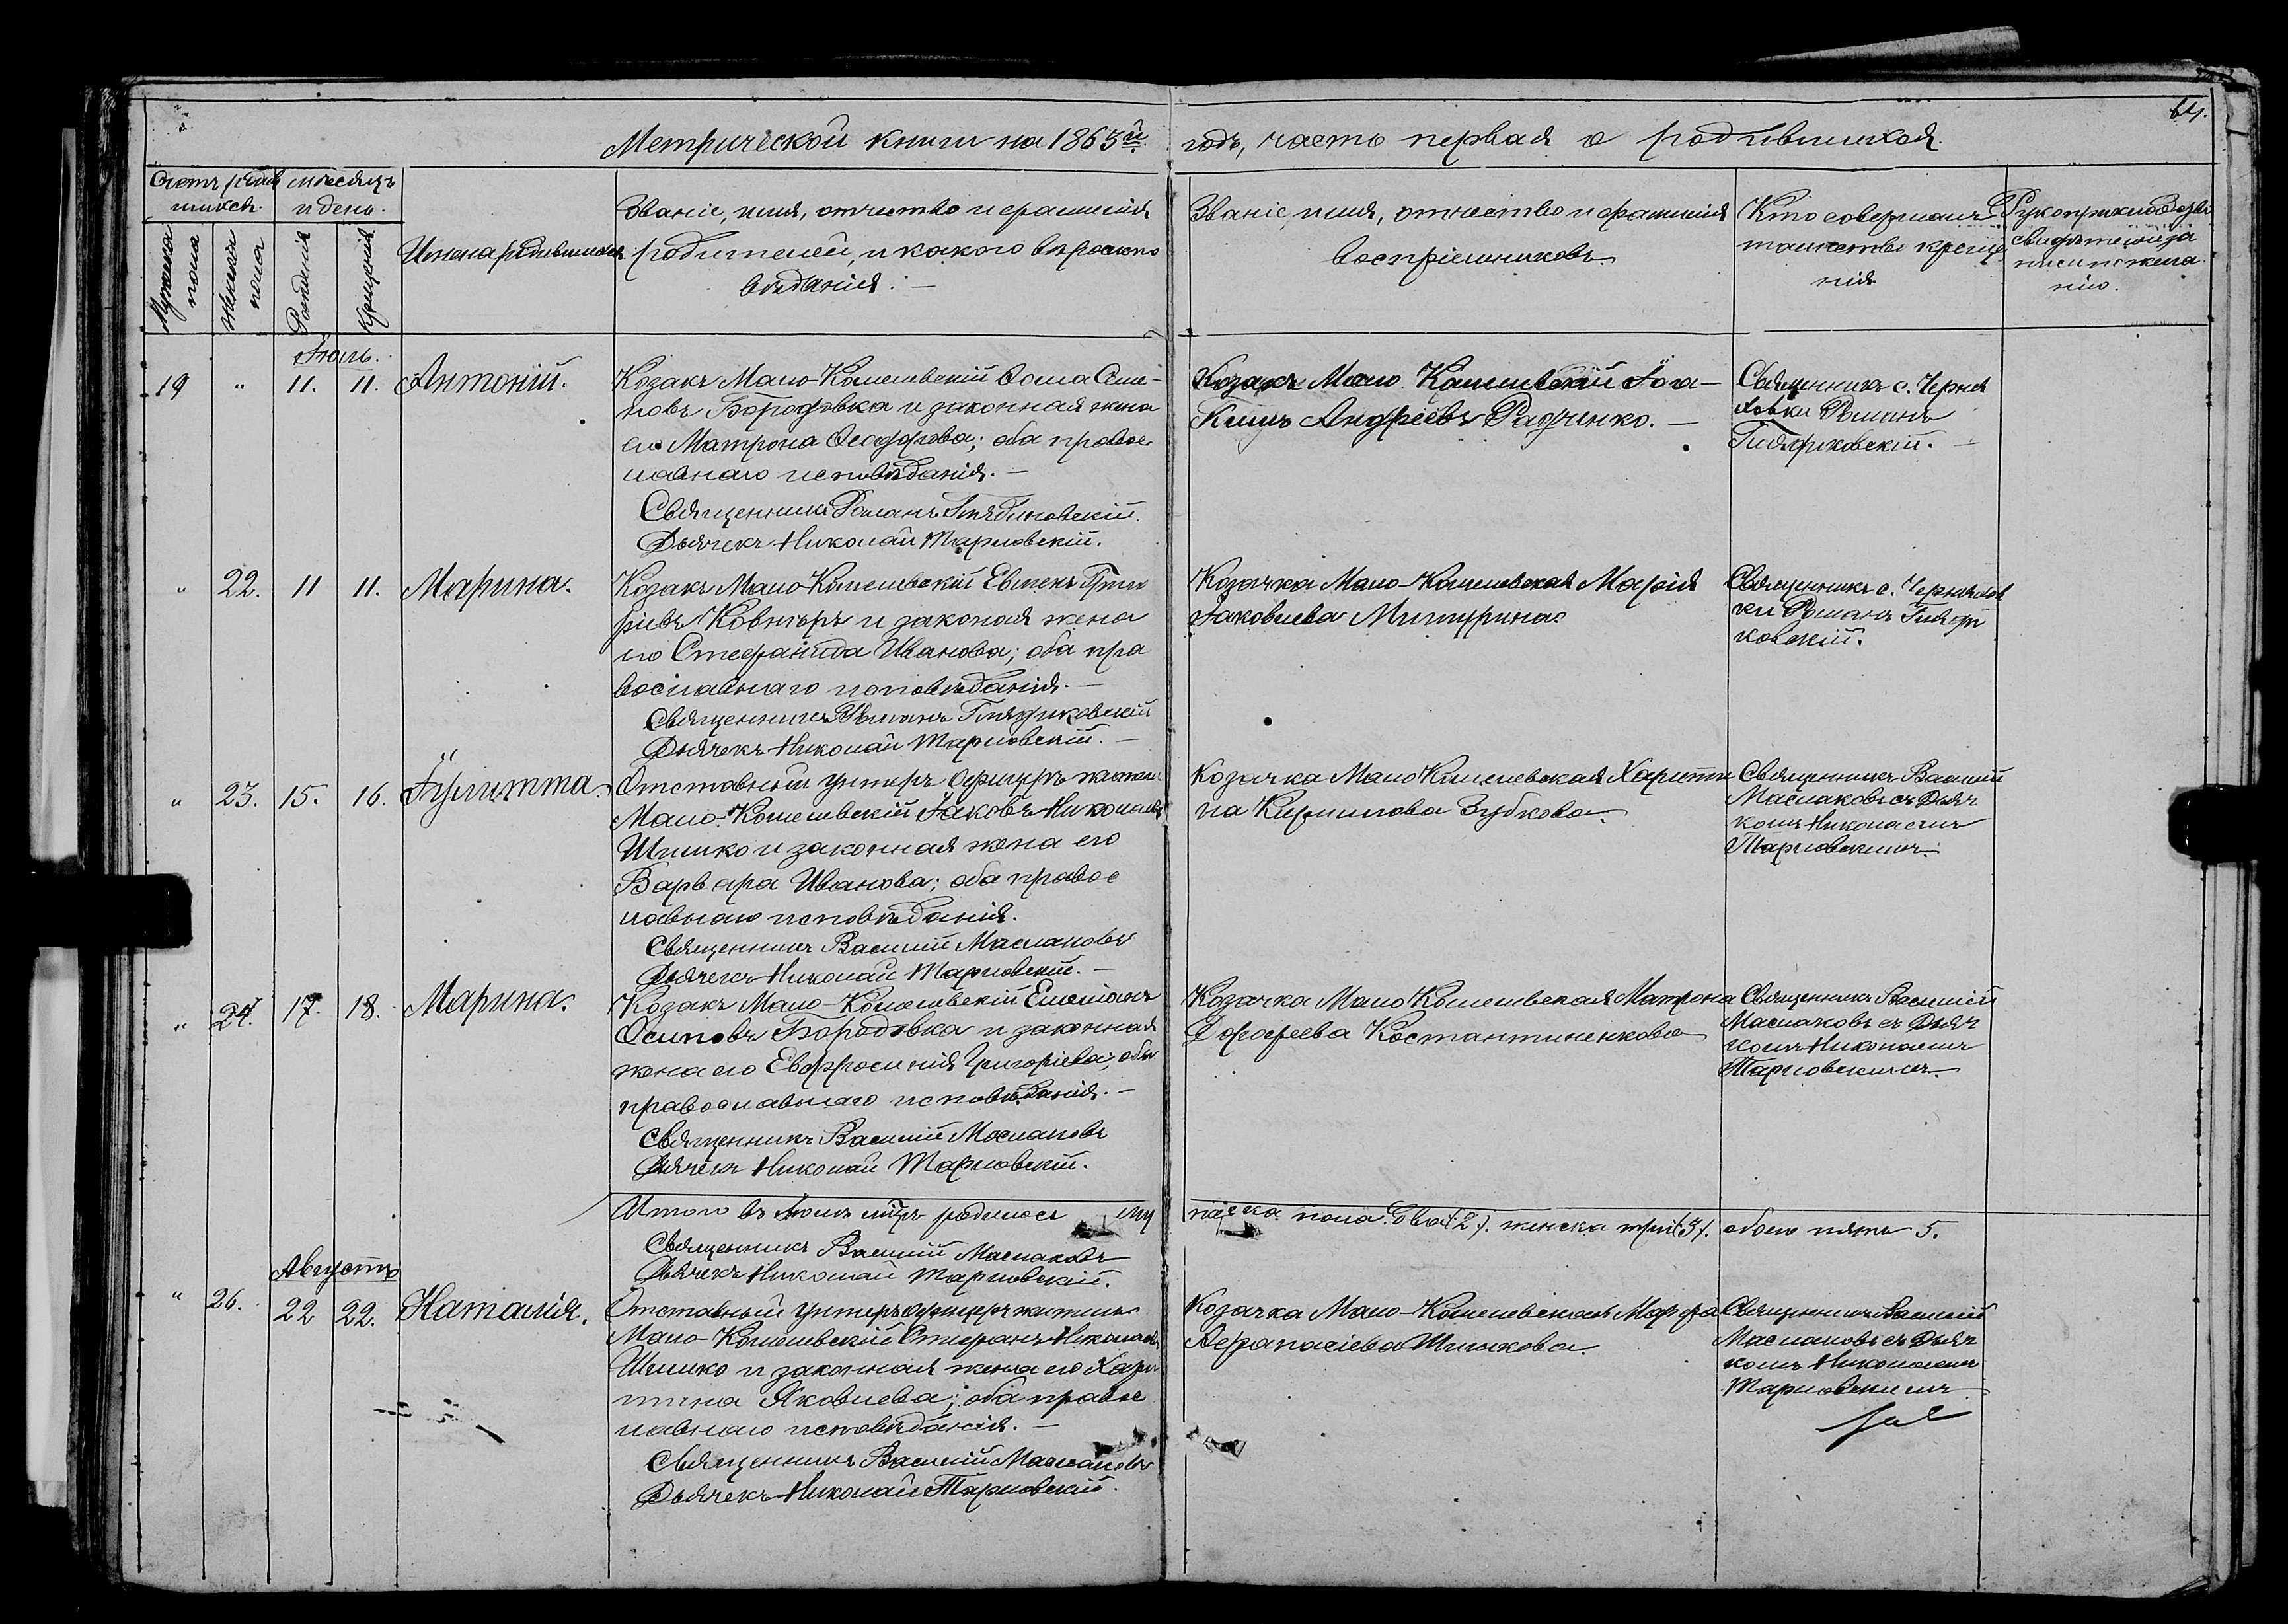 64.
Метрической книги на 1863й годъ, часть первая о родившихся.
Счетъ родив
шихся.
мѣсяцъ
и день.
Мужеска
пола
Женска
пола
Рожденія
Крещенія
Имена родившихся
Званіе, имя, отчество и фамилія
родителей, и какого вѣроиспо
вѣданія. —
Званіе, имя, отчество и фамилія
воспріемниковъ.
Кто совершалъ
таинство креще
нія
Рукоприкладство
свидѣтелей за
писи по жела
нію.
Іюль.
19 " 11. 11. Антоній.
Козакъ Мало-Кошелевскій Ѳома Семе-
новъ Бородовка и законная жена
его Матрона Ѳеодорова; оба правос
лавнаго исповѣданія. —
Священникъ Романъ
Дьячекъ Николай Тарновскій.
Козакъ Мало Кошелевскій Іоа-
кимъ Андреевъ Радченко. —
Священникъ с. Черня
ховки Романъ
" 22. 11 11. Марина.
Козакъ Мало-Кошелевскій Евменъ Григо
ріевъ Ковнеръ и законая жена
его Стефанида Иванова; оба пра
вославнаго исповѣданія. —
Священникъ Романъ
Дьячекъ Николай Тарновскій. —
Козачка Мало-Кошелевская Марія
Іаковлева
Священникъ с. Черняхов
ки Романъ
" 23. 15. 16. Іулитта.
Отставный унтеръ офицеръ житель
Мало-Кошелевскій Іаковъ Николаевъ
Шишко и законная жена его
Варвара Иванова; оба правос
лавнаго исповѣданія.
Священникъ Василій Маслаковъ
Дьячекъ Николай Тарновскій. —
Козачка Мало Кошелевская Харити
на Кирилова Зубкова.
Священникъ Василій
Маслаковъ съ Дьяч
комъ Николаемъ
Тарновскимъ.
" 24. 17. 18. Марина.
Козакъ Мало-Кошелевскій Емеліанъ
Осиповъ Бородовка и законная
жена его Евфросинія Григоріева; оба
православнаго исповѣданія. —
Священникъ Василій Маслаковъ
Дьячекъ Николай Тарновскій.
Козачка Мало Кошелевская Матрона
Дорофеева Костантиненкова
Священникъ Василій
Маслаковъ съ Дьяч
комъ Николаемъ
Тарновскимъ.
Итого въ Іюлѣ мцѣ родилось му
жеска пола два (2). женска три (3). обоего пять 5.
Священникъ Василій Маслаковъ
Дьячекъ Николай Тарновскій.
Августъ
" 26. 22 22. Наталія.
Отставный унтеръ офицеръ житель
Мало-Кошелевскій Стефанъ Николаевъ
Шишко и законная жена его Хари
тина Яковлева; оба правос
лавнаго исповѣданія. —
Священникъ Василій Маслаковъ
Дьячекъ Николай Тарновскій.
Козачка Мало-Кошелевская Марфа
Аѳанасіева Шишкова.
Священникъ Василій
Маслаковъ съ Дьяч
комъ Николаемъ
Тарновскимъ